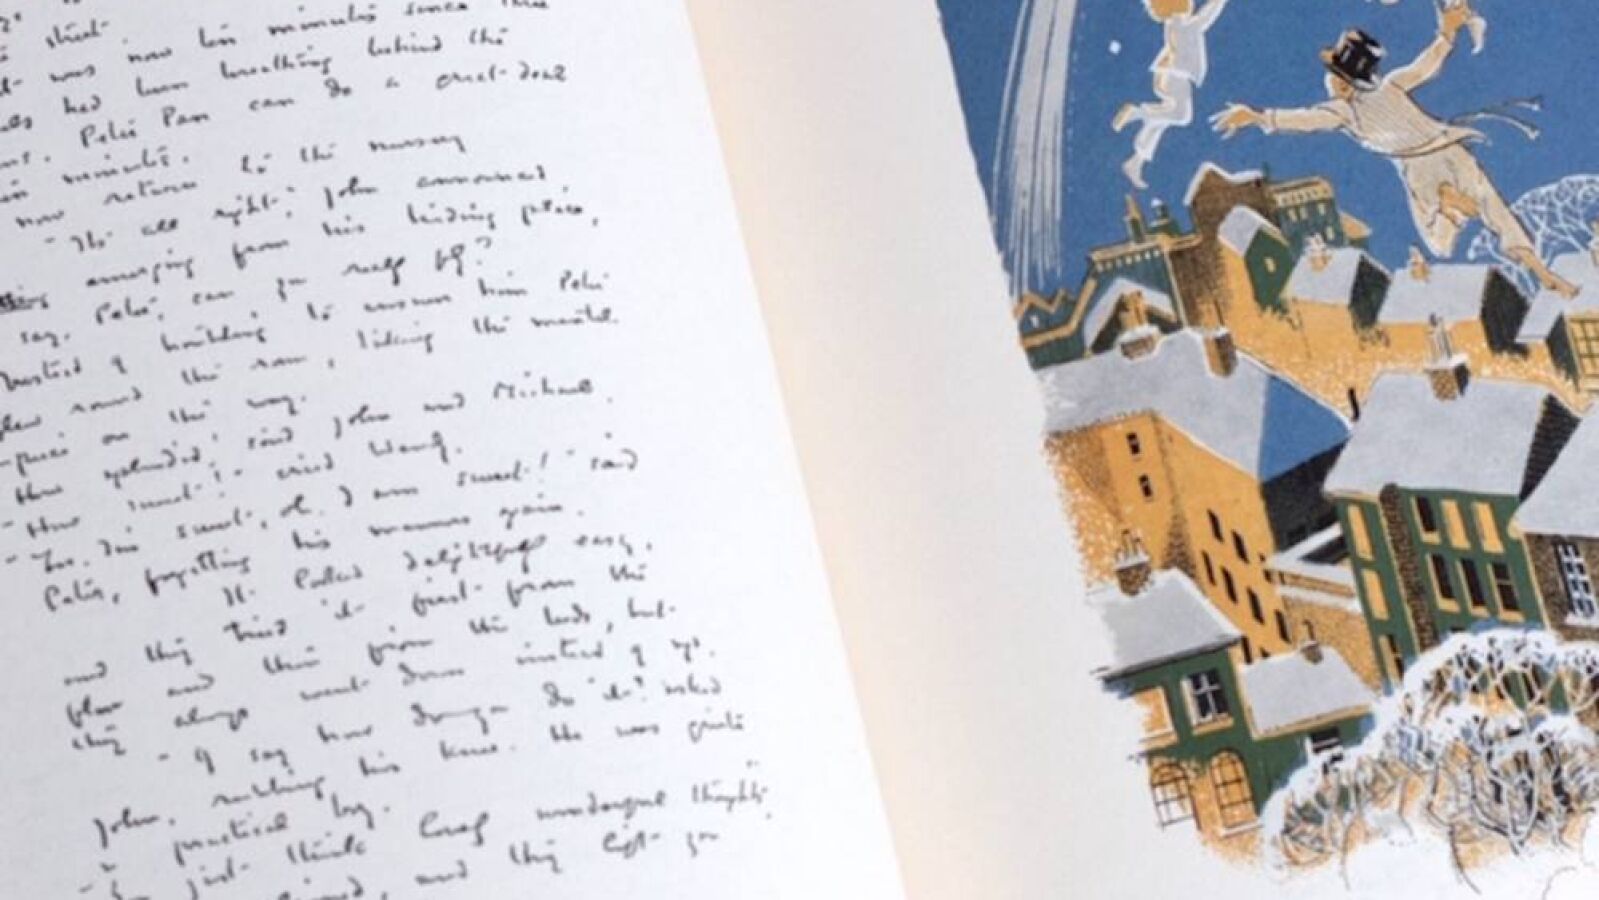 street.
was now ten minutes since
had been breathing behind the
Peter Pan can do a great deal
in ten minutes.
now return to the nursery
"It's all right," John announced
emerging from his hiding place,
say, Peter, can you really fly?"
Instead of troubling to answer him Peter
flew round the room, taking the mantel
-piece on the way.
"How splendid!" said John and Michael.
"How sweet!" cried Wendy.
"Yes, I'm sweet, oh, I am sweet!" said
Peter, forgetting his manners again.
It looked delightfully easy,
and they tried it first from the
floor and then from the beds, but
they always went down instead of up.
"I say how do you do it?" asked
John, rubbing his knee. He was quite
a practical boy.
"You just think lovely wonderful thoughts,"
and they lift you